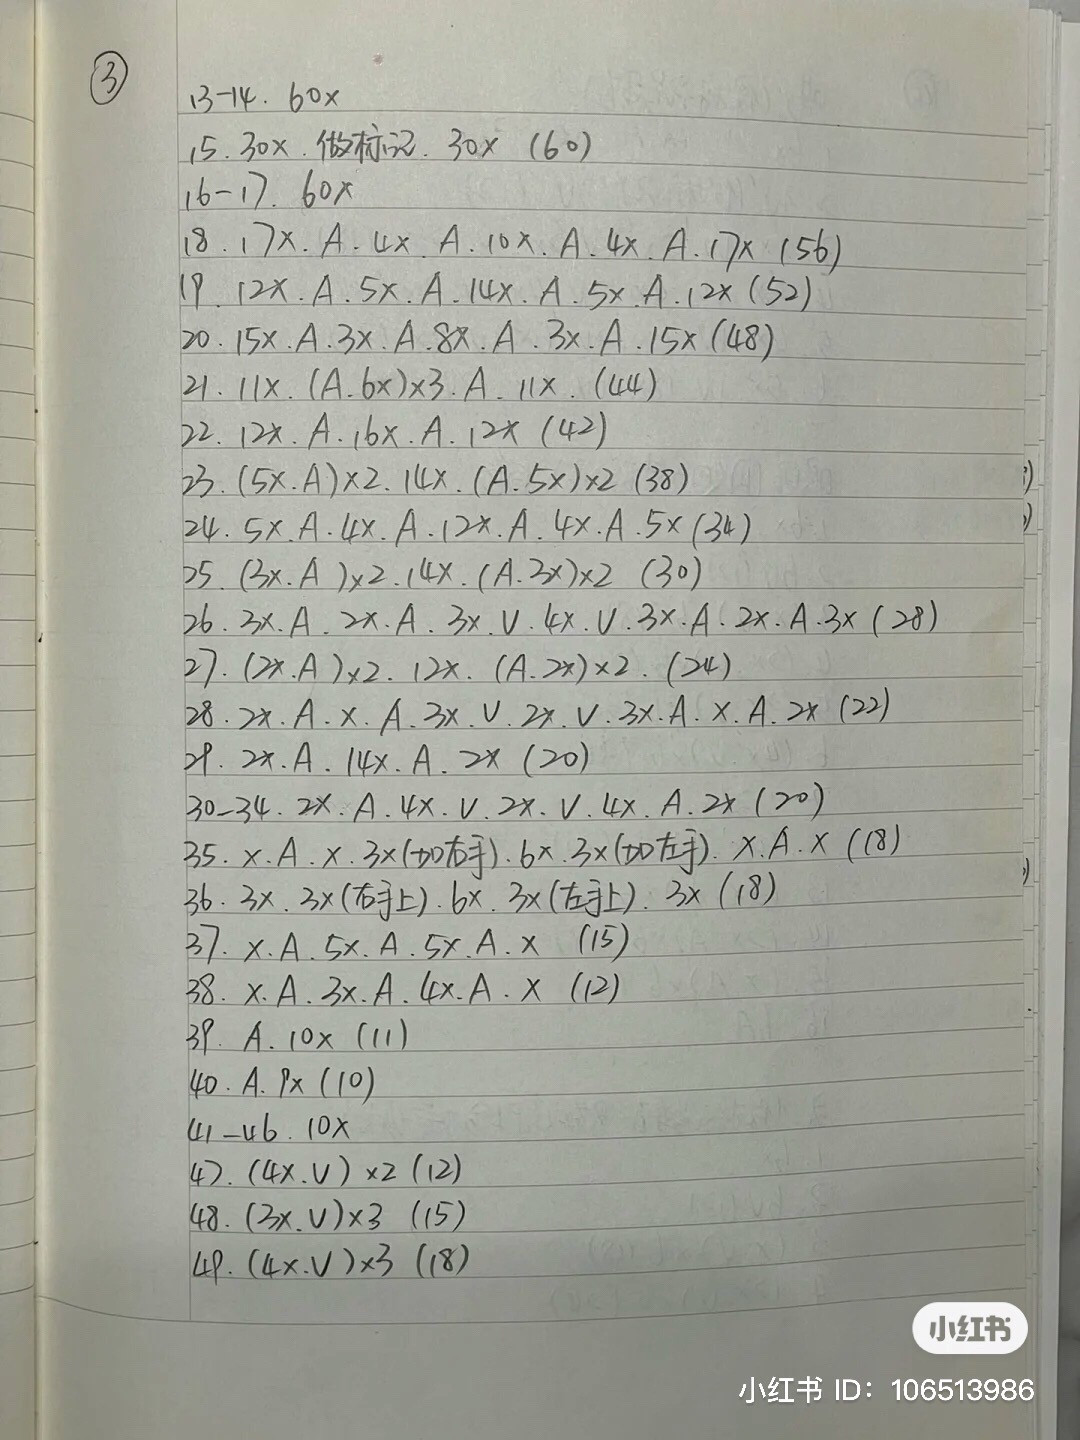 ③
13-14. 60x
15. 30x. 做标记. 30x (60)
16-17. 60x
18. 17x. A. 4x. A. 10x. A. 4x. A. 17x (56)
19. 12x. A. 5x. A. 14x. A. 5x. A. 12x (52)
20. 15x. A. 3x. A. 8x. A. 3x. A. 15x (48)
21. 11x. (A. 6x)×3. A. 11x. (44)
22. 12x. A. 16x. A. 12x (42)
23. (5x. A)×2. 14x. (A. 5x)×2 (38)
24. 5x. A. 4x. A. 12x. A. 4x. A. 5x (34)
25. (3x. A)×2. 14x. (A. 3x)×2 (30)
26. 3x. A. 2x. A. 3x. V. 4x. V. 3x. A. 2x. A. 3x (28)
27. (2x. A)×2. 12x. (A. 2x)×2. (24)
28. 2x. A. x. A. 3x. V. 2x. V. 3x. A. x. A. 2x (22)
29. 2x. A. 14x. A. 2x (20)
30-34. 2x. A. 4x. V. 2x. V. 4x. A. 2x (20)
35. x. A. x. 3x(加右手). 6x. 3x(加左手). x. A. x (18)
36. 3x. 3x(右手上). 6x. 3x(左手上). 3x (18)
37. x. A. 5x. A. 5x. A. x (15)
38. x. A. 3x. A. 4x. A. x (12)
39. A. 10x (11)
40. A. 9x (10)
41-46. 10x
47. (4x. V)×2 (12)
48. (3x. V)×3 (15)
49. (4x. V)×3 (18)
小红书
小红书 ID: 106513986